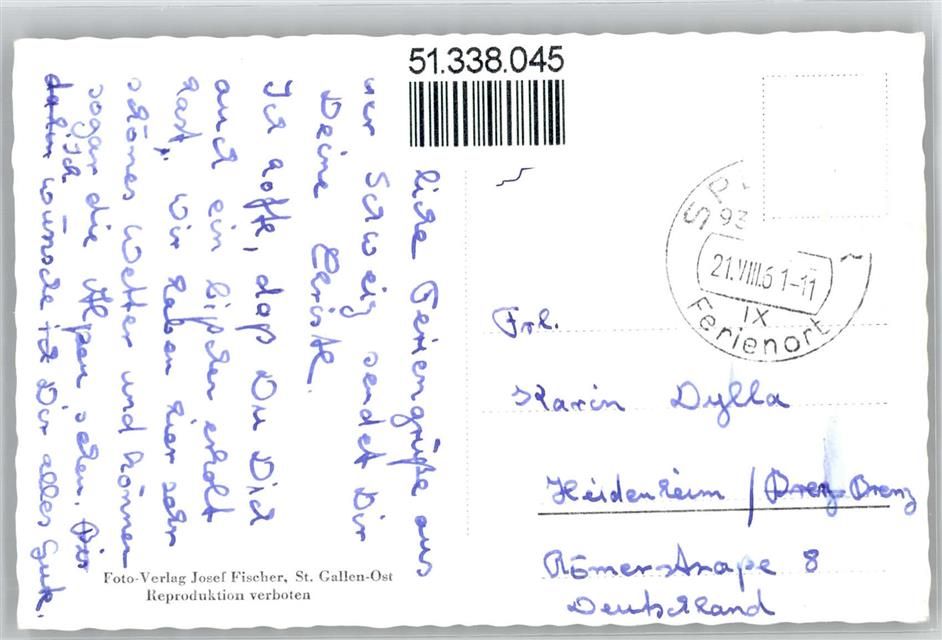 51.338.045
liche Feriengrüße aus
der Schweiz sendet Dir
Deine Christl.
Ich hoffe, daß Du Dich
auch ein bißchen erholt
hast, wir haben hier sehr
schönes Wetter und können
sogar die Alpen sehen. Bis
dahin wünsche ich Dir alles Gute.
Foto-Verlag Josef Fischer, St. Gallen-Ost
Reproduktion verboten
93
21.VIII.61-11
IX
Ferienort
Frl.
Karin Dylla
Heidenheim / Brenz Brenz
Römerstraße 8
Deutschland